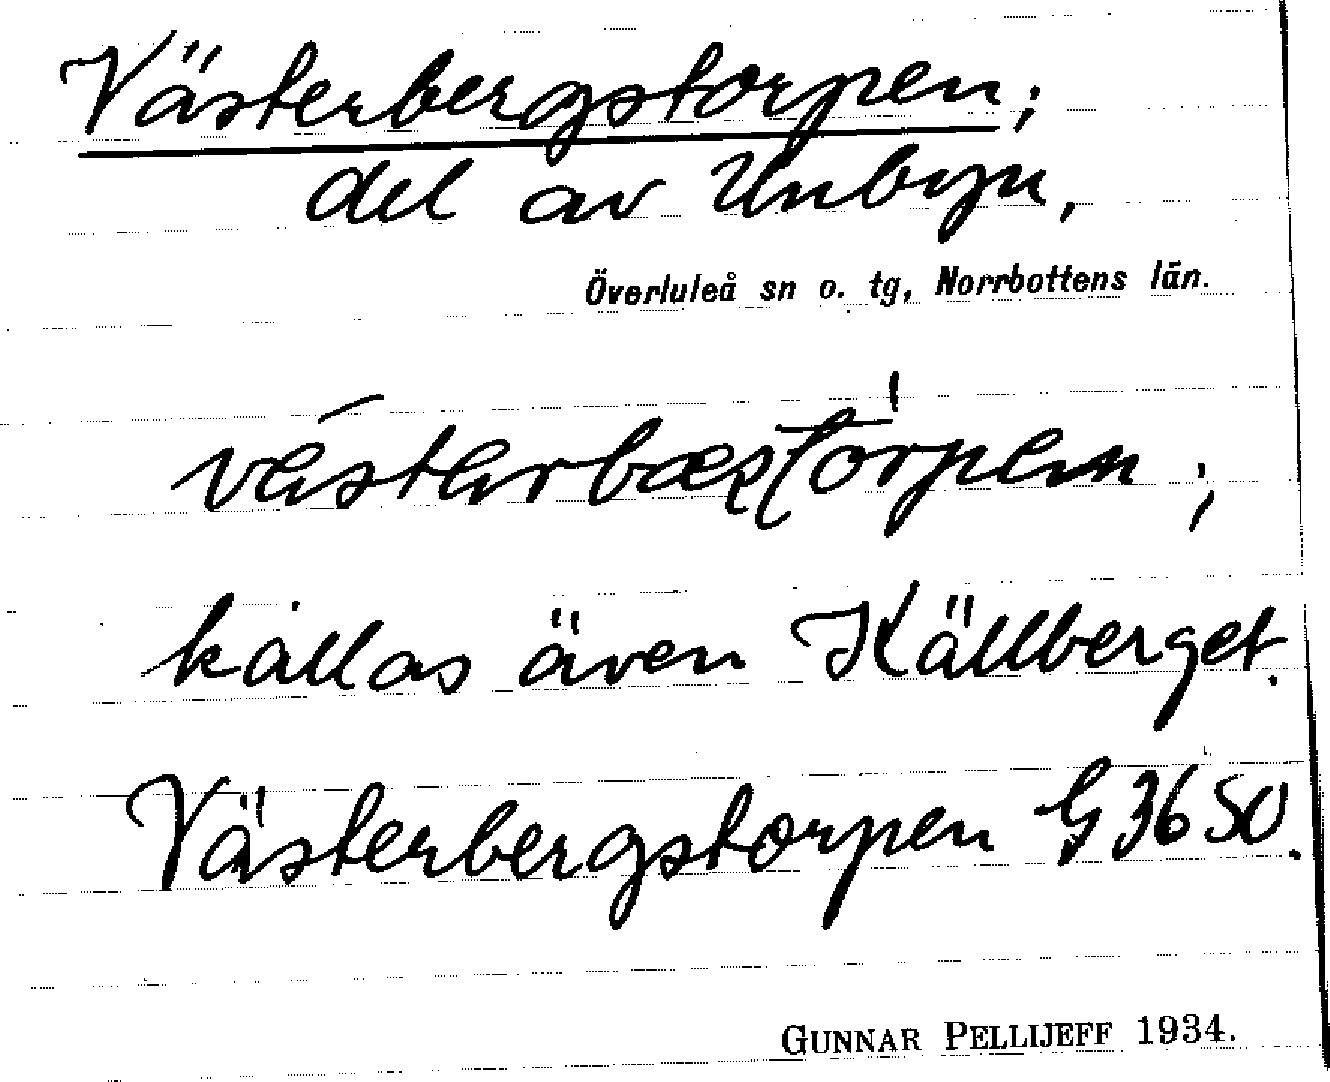 Västerbergstorpen;
del av Unbyn,
Överluleå sn o. tg, Norrbottens län.
kallas även Källberget.
Västerbergstorpen G 3650.
GUNNAR PELLIJEFF 1934.